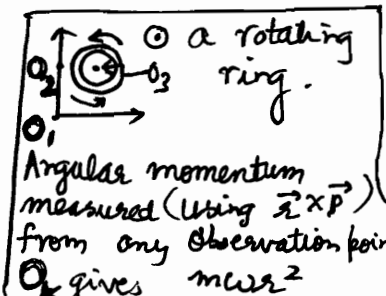 ⊙ a rotating
ring.
O₂
O₃
O₁
Angular momentum
measured (using r⃗ × p⃗)
from any observation poin
O gives mωr²